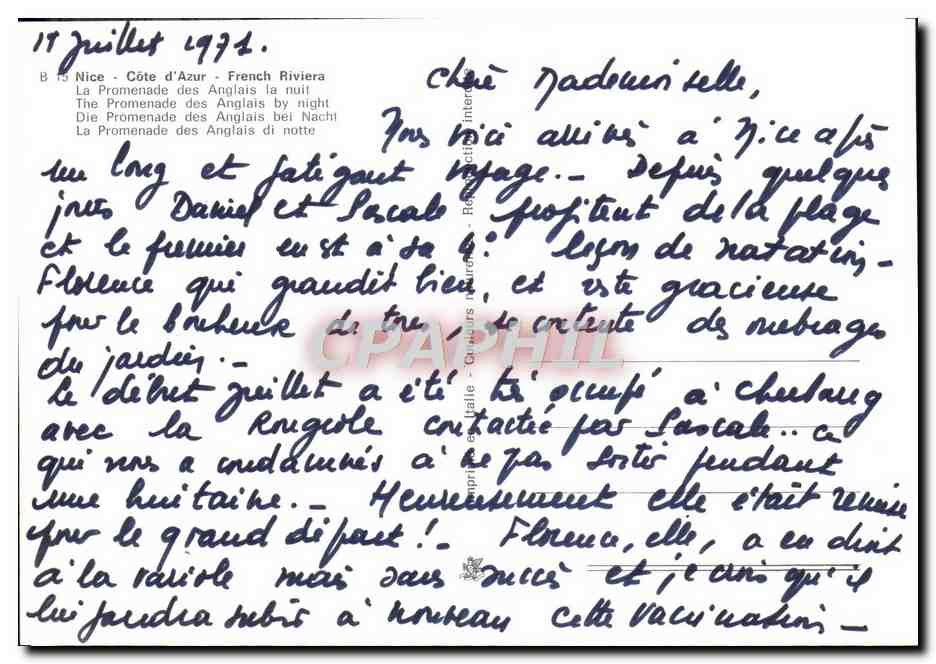 17 Juillet 1971.
B 15 Nice - Côte d'Azur - French Riviera
La Promenade des Anglais la nuit
The Promenade des Anglais by night
Die Promenade des Anglais bei Nacht
La Promenade des Anglais di notte
Chère Mademoiselle,
Nous voici arrivés à Nice après
un long et fatigant voyage. - Depuis quelques
jours Daniel et Pascale profitent de la plage
et le premier en est à sa 4° leçon de natation -
Florence qui grandit bien, et reste gracieuse
pour le bonheur de tous, se contente des ombrages
du jardin. -
Le début juillet a été très occupé à Cherbourg
avec la Rougeole contactée par Pascale.. ce
qui nous a condamnés à ne pas sortir pendant
une huitaine. - Heureusement elle était remise
pour le grand départ! - Florence, elle, a eu droit
à la variole mais sans succès et je crois qu'il
lui faudra subir à nouveau cette vaccination -
Imprimé en Italie - Couleurs naturelles - Reproduction interdite
CPAPHIL